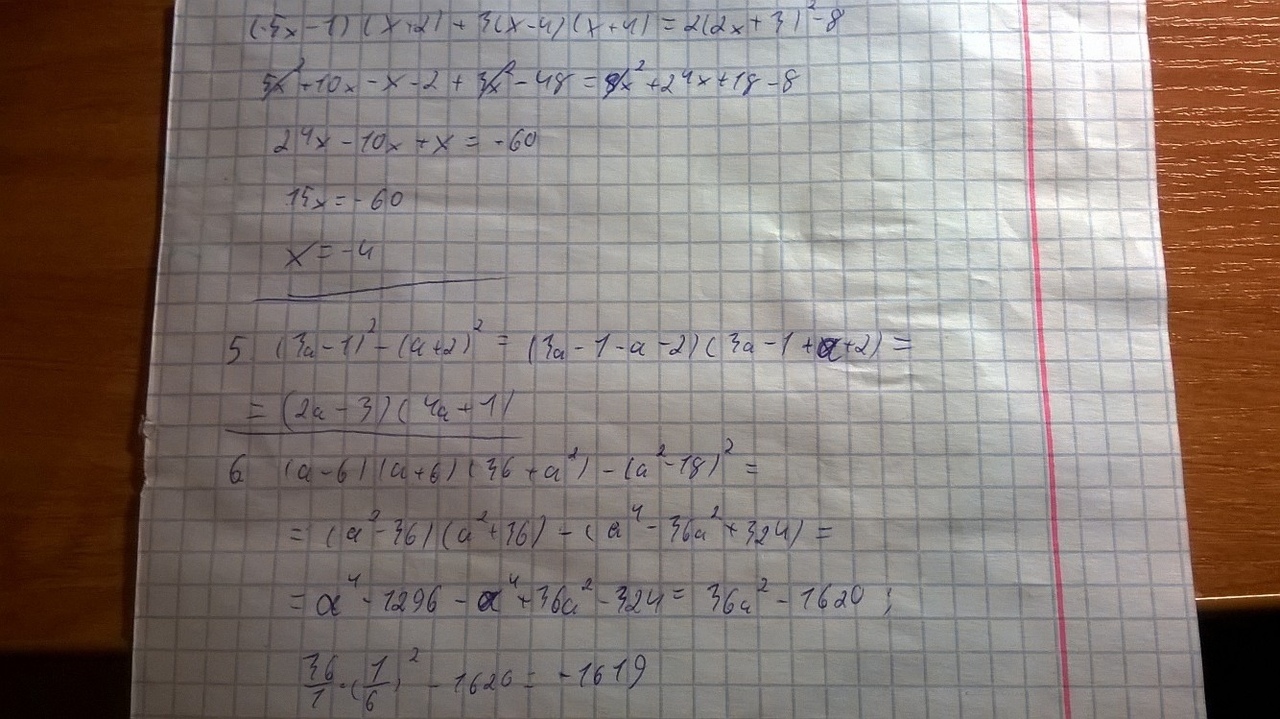 (5x-1)(x+2)+3(x-4)(x+4)=2(2x+3)²-8
5x²+10x-x-2+3x²-48=8x²+24x+18-8
24x-10x+x=-60
15x=-60
x=-4
5. (3a-1)²-(a+2)²=(3a-1-a-2)(3a-1+a+2)=
=(2a-3)(4a+1)
6 (a-6)(a+6)(36+a²)-(a²-18)²=
=(a²-36)(a²+36)-(a⁴-36a²+324)=
=a⁴-1296-a⁴+36a²-324=36a²-1620;
36/1·(1/6)²-1620=-1619